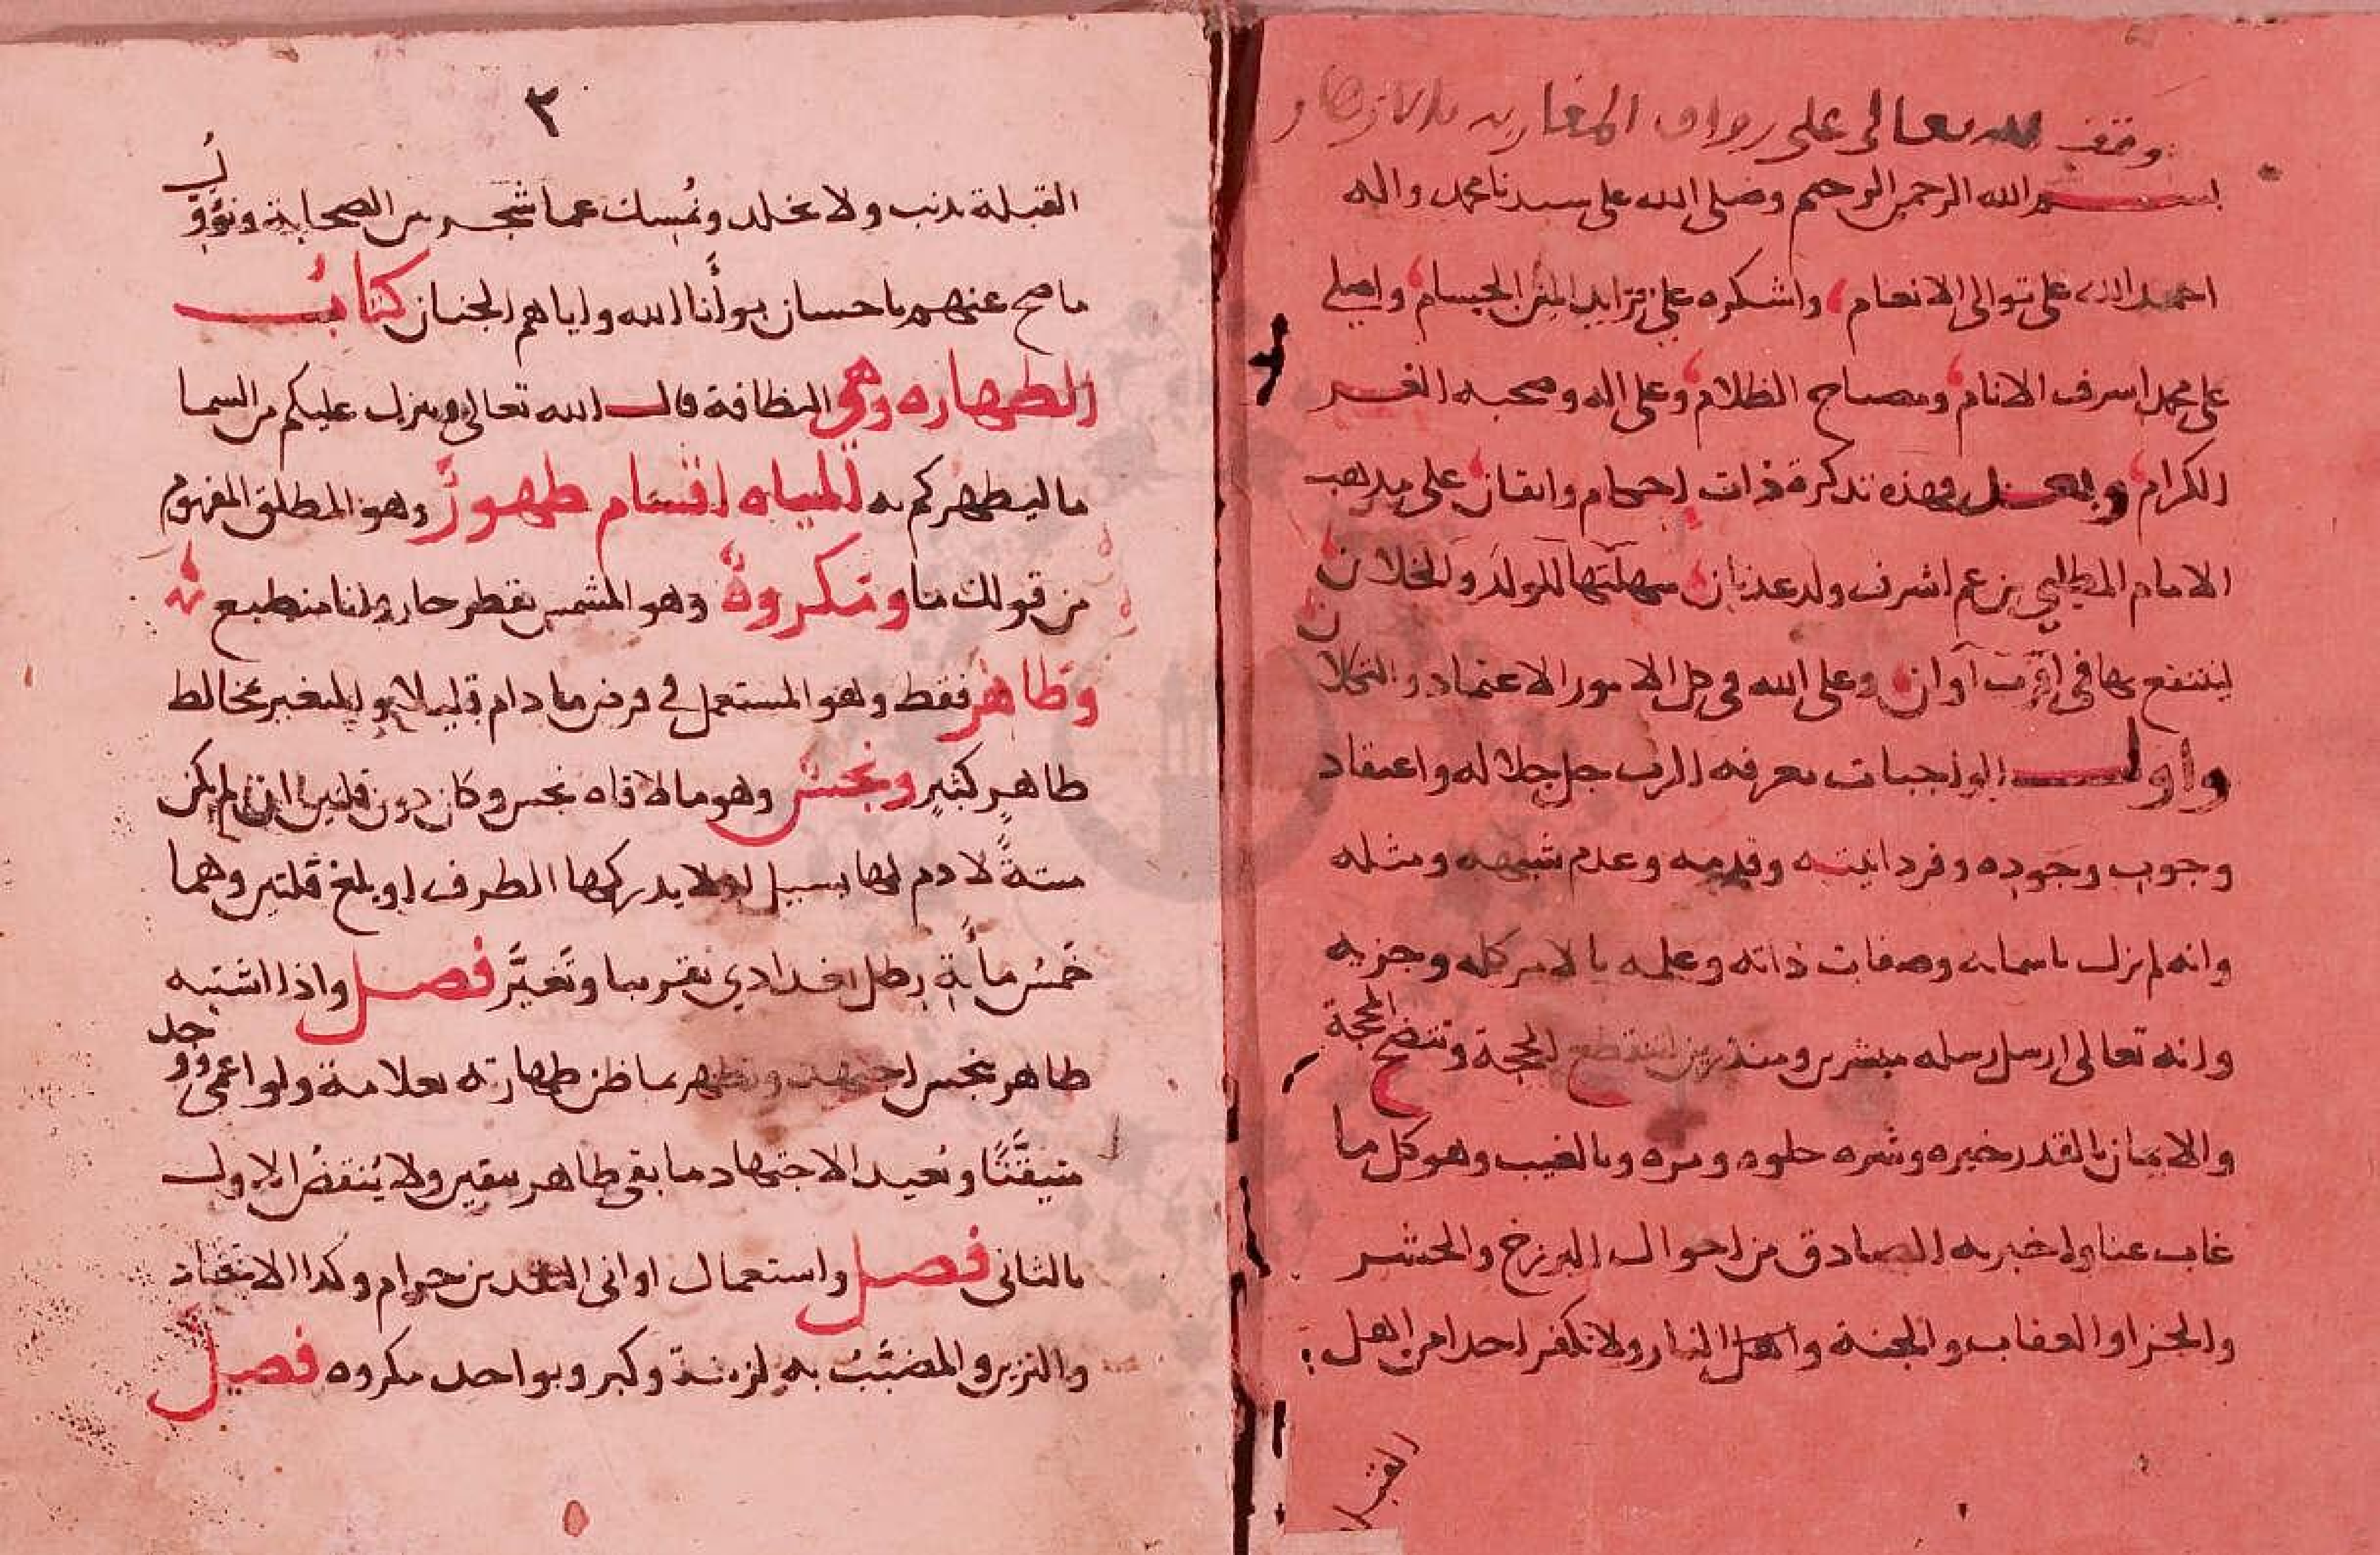 وقف لله تعالى على رواق المغاربه بالازهر
بسم الله الرحمن الرحيم وصلى الله على سيدنا محمد واله
احمد الله على توالى الانعام، واشكره على تزايد المنن الجسام، واصلى
على محمد اشرف الانام، ومصباح الظلام، وعلى اله وصحبه الغر
الكرام، وبعد فهذه تذكرة ذات احكام واتقان، على مذهب
الامام المطلبي بن عم اشرف ولد عدنان، سهلتها للولد والخلان،
لينتفع بها في اقرب آوان، وعلى الله في كل الامور الاعتماد والتكلان
واول الواجبات معرفه الرب جل جلاله واعتقاد
وجوب وجوده وفردانيته وقدمه وعدم شبيهه ومثله
وانه لم يزل باسمايه وصفات ذاته وعلمه بالامر كله وجزيه
وانه تعالى ارسل رسله مبشرين ومنذرين لتنقطع الحجة وتتضح المحجة
والايمان بالقدر خيره وشره حلوه ومره وبالغيب وهو كل ما
غاب عنا واخبر به الصادق من احوال البرزخ والحشر
والجزا والعقاب والجنة واهل النار ولا نكفر احدا من اهل
القبله
٢
القبلة بذنب ولا يخلد ونمسك عما شجر بين الصحابة ونؤول
ما صح عنهم باحسان بوأنا الله واياهم الجنان كتاب
الطهاره وهي النظافة قال الله تعالى وينزل عليكم من السما
ما ليطهركم به المياه اقسام طهور وهو المطلق المفهوم
من قولك ما ومكروه وهو المشمس بقطر حار في انا منطبع
وطاهر فقط وهو المستعمل في فرض ما دام قليلا او المتغير بمخالط
طاهر كثير ونجس وهو ما لاقاه نجس وكان دون قلتين ان لم يكن
ميتة لا دم لها يسيل اولا يدركها الطرف او بلغ قلتين وهما
خمس مأية رطل بغدادي تقريبا وتغير فصل واذا اشتبه
طاهر بنجس اجتهد وتطهر بما ظن طهارته بعلامة ولو اعمى ووجد
متيقنا ويعيد الاجتهاد ما بقى طاهر بيقين ولا ينتقض الاول
بالثانى فصل واستعمال اوانى النقدين حرام وكذا الاتخاذ
والتزين والمضبب به لزينة وكبر وبواحد مكروه فصل